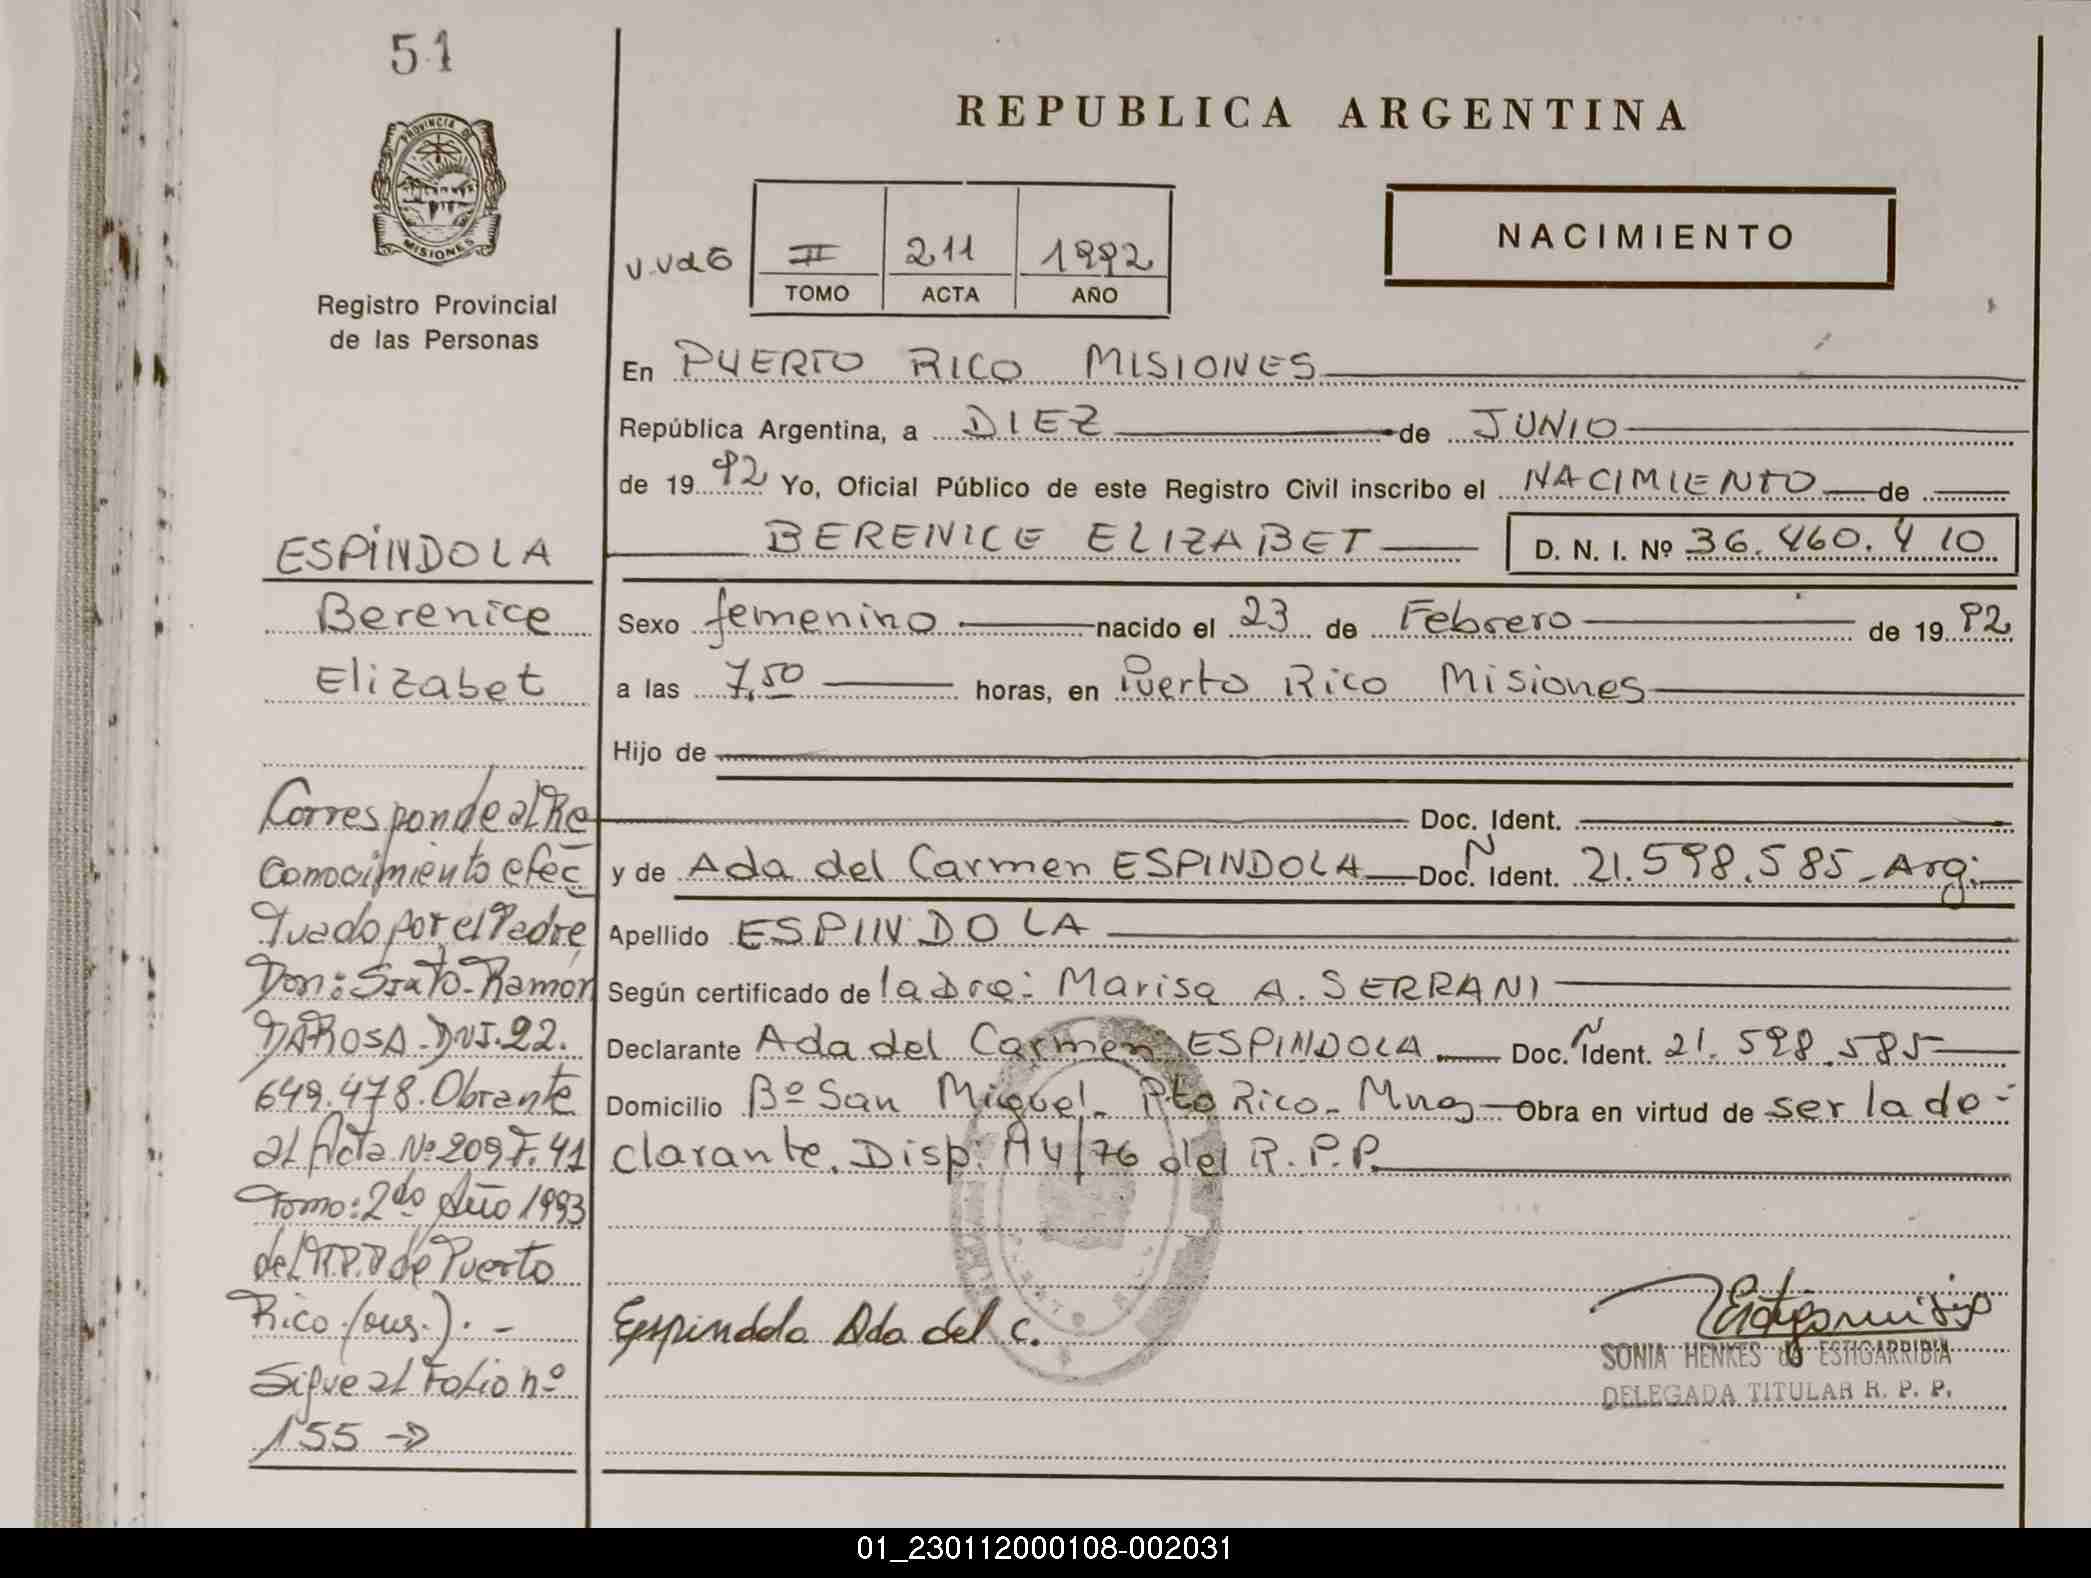 51
PROVINCIA DE
MISIONES
Registro Provincial
de las Personas
REPUBLICA ARGENTINA
NACIMIENTO
II 211 1992
TOMO ACTA AÑO
En PUERTO RICO MISIONES
República Argentina, a DIEZ de JUNIO
de 1992 Yo, Oficial Público de este Registro Civil inscribo el NACIMIENTO de
BERENICE ELIZABET D. N. I. Nº 36.460.410
Sexo femenino nacido el 23 de Febrero de 1992
a las 7,50 horas, en Puerto Rico Misiones
Hijo de
Doc. Ident.
y de Ada del Carmen ESPINDOLA Doc. N Ident. 21.598.585 - Arg:
Apellido ESPINDOLA
Según certificado de la Dra: Marisa A. SERRANI
Declarante Ada del Carmen ESPINDOLA Doc. N Ident. 21.598.585
Domicilio Bº San Miguel - Pto Rico - Mnes Obra en virtud de ser la de-
clarante. Disp: 114/76 del R.P.P.
Espindola Ada del C.
SONIA HENKES de ESTIGARRIBIA
DELEGADA TITULAR R. P. P.
ESPÍNDOLA
Berenice
Elizabet
Corresponde al Re
conocimiento efec
tuado por el Padre
Don: Sixto Ramón
DAROSA - DNI. 22.
649.478. Obrante
al Acta Nº 209 F. 41
Tomo: 2do Año 1993
del R.P.P de Puerto
Rico
Sigue al Folio nº
155 →
01_230112000108-002031